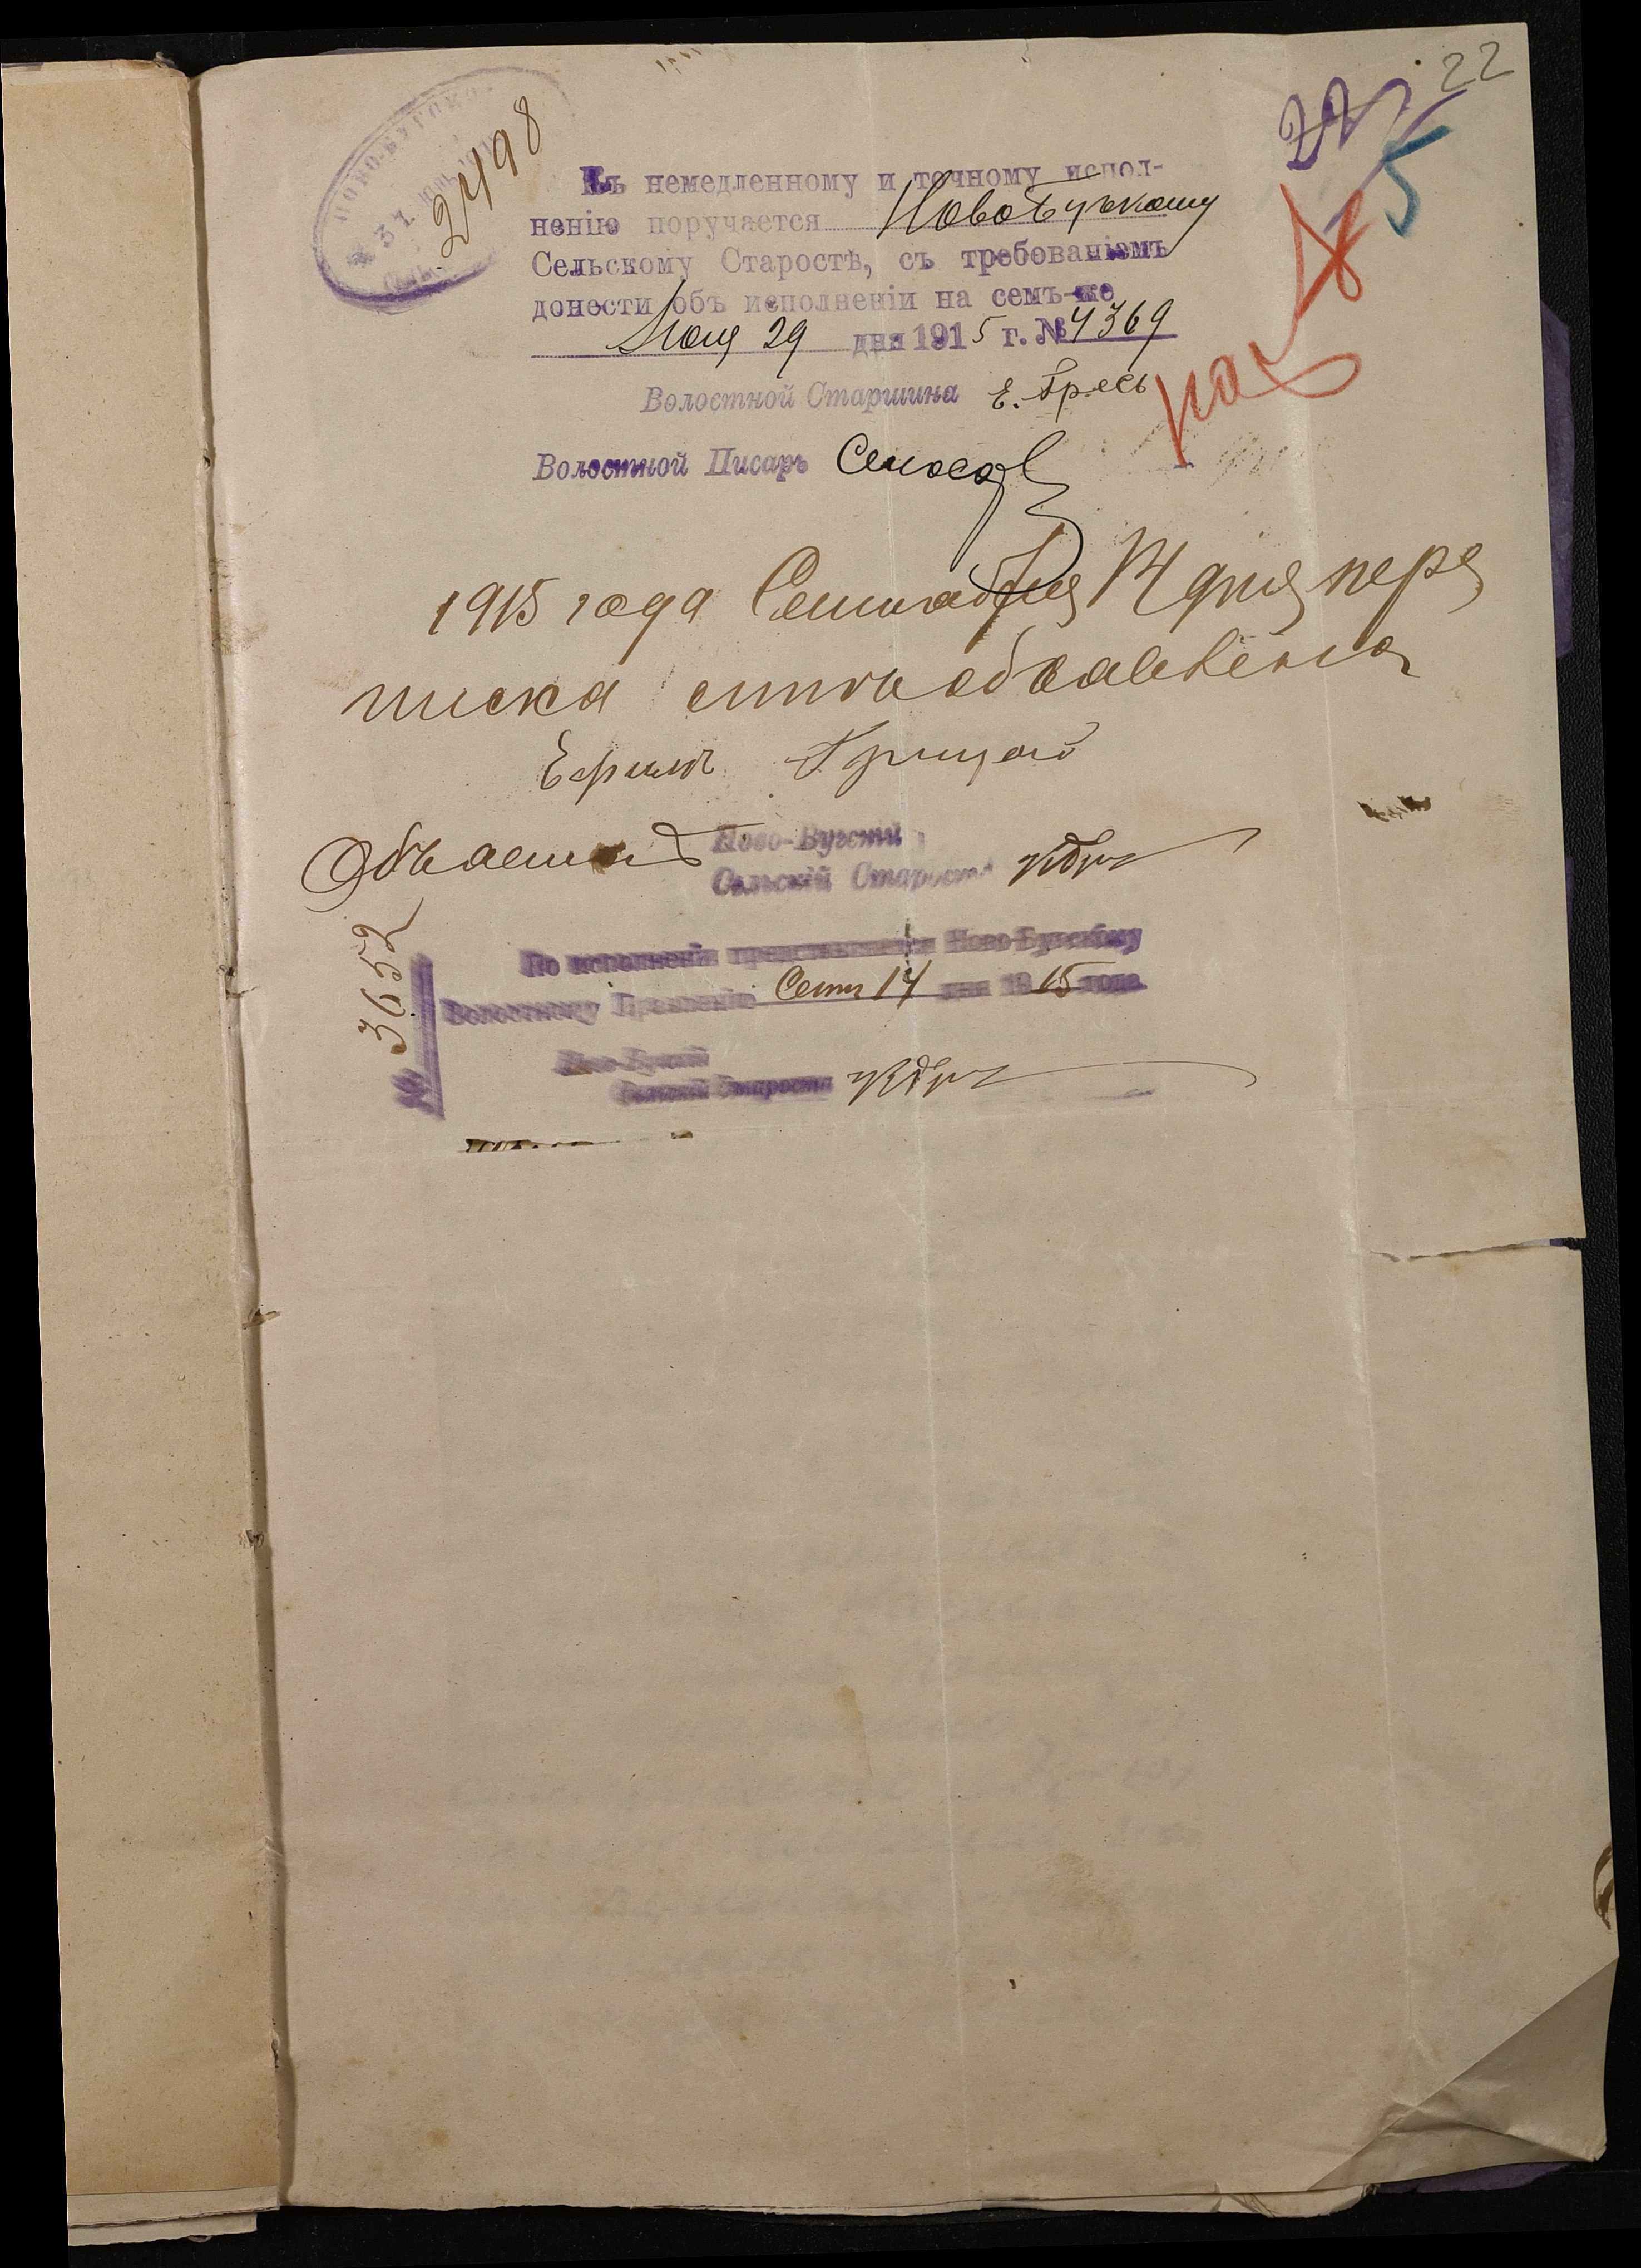 22
22
5
2498
НОВО-БУГСКО
31
Къ немедленному и точному испол-
ненію поручается Новобугскому
Сельскому Старостѣ, съ требованіемъ
донести объ исполненіи на семъ-же
29 дня 1915 г. № 4369
Волостной Старшина Е.
Волостной Писарь
1915 года Сентября 14 дня пере
писка объявлена
Ефиму Грицай
Объявилъ Ново-Бугскій
Сельскій Староста
№ 3652
По исполненіи представляется Ново-Бугскому
Волостному Правленію Сент 14 дня 1915 года
Ново-Бугскій
Сельскій Староста